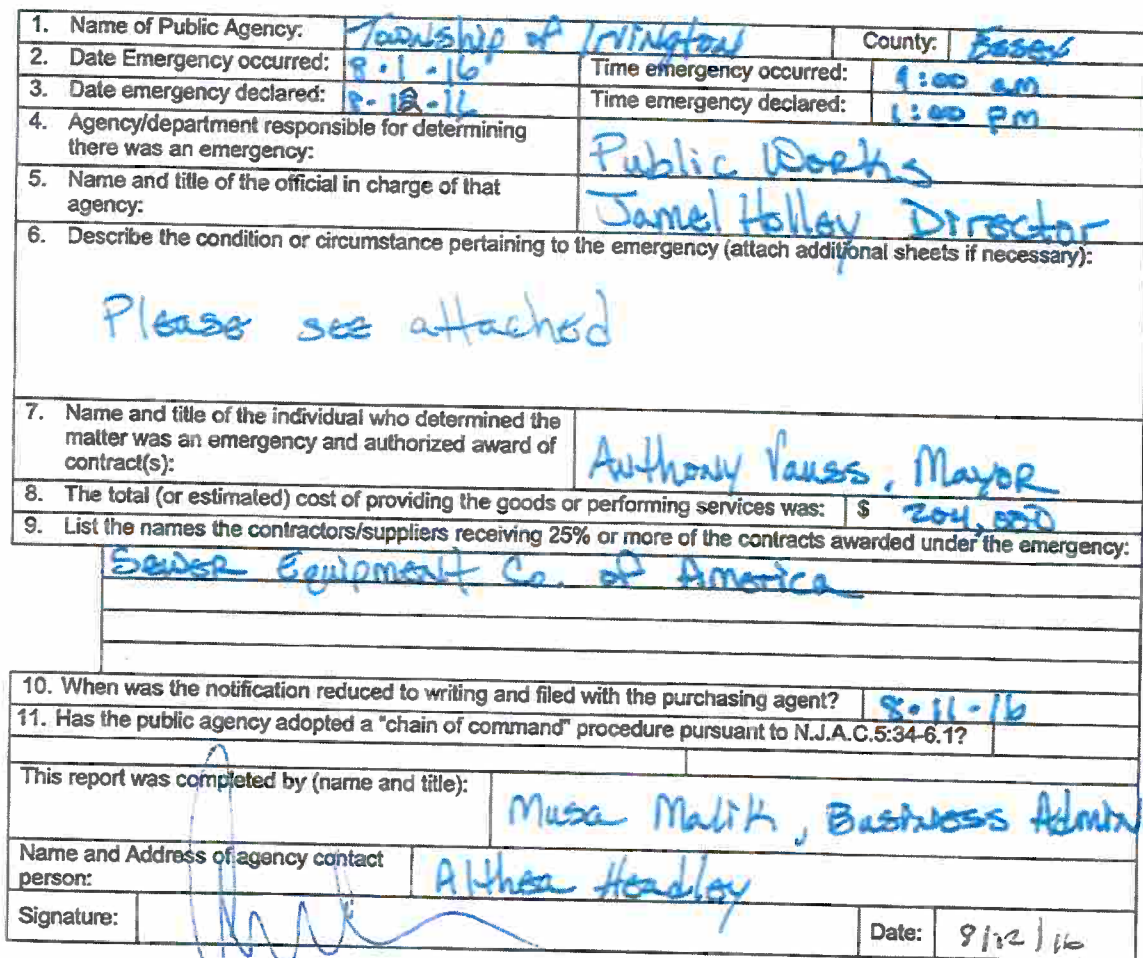 1. Name of Public Agency: Township of Irvington County: Essex
2. Date Emergency occurred: 8.1.16 Time emergency occurred: 9:00 am
3. Date emergency declared: 8-12-16 Time emergency declared: 1:00 pm
4. Agency/department responsible for determining
there was an emergency: Public Works
5. Name and title of the official in charge of that
agency: Jamel Holley Director
6. Describe the condition or circumstance pertaining to the emergency (attach additional sheets if necessary):
Please see attached
7. Name and title of the individual who determined the
matter was an emergency and authorized award of
contract(s): Anthony Vauss, Mayor
8. The total (or estimated) cost of providing the goods or performing services was: $ 204,000
9. List the names the contractors/suppliers receiving 25% or more of the contracts awarded under the emergency:
Sewer Equipment Co. of America
10. When was the notification reduced to writing and filed with the purchasing agent? 8.11-16
11. Has the public agency adopted a "chain of command" procedure pursuant to N.J.A.C.5:34-6.1?
This report was completed by (name and title): Musa Malik, Business Admin
Name and Address of agency contact
person: Althea Headley
Signature: Date: 8/12/16